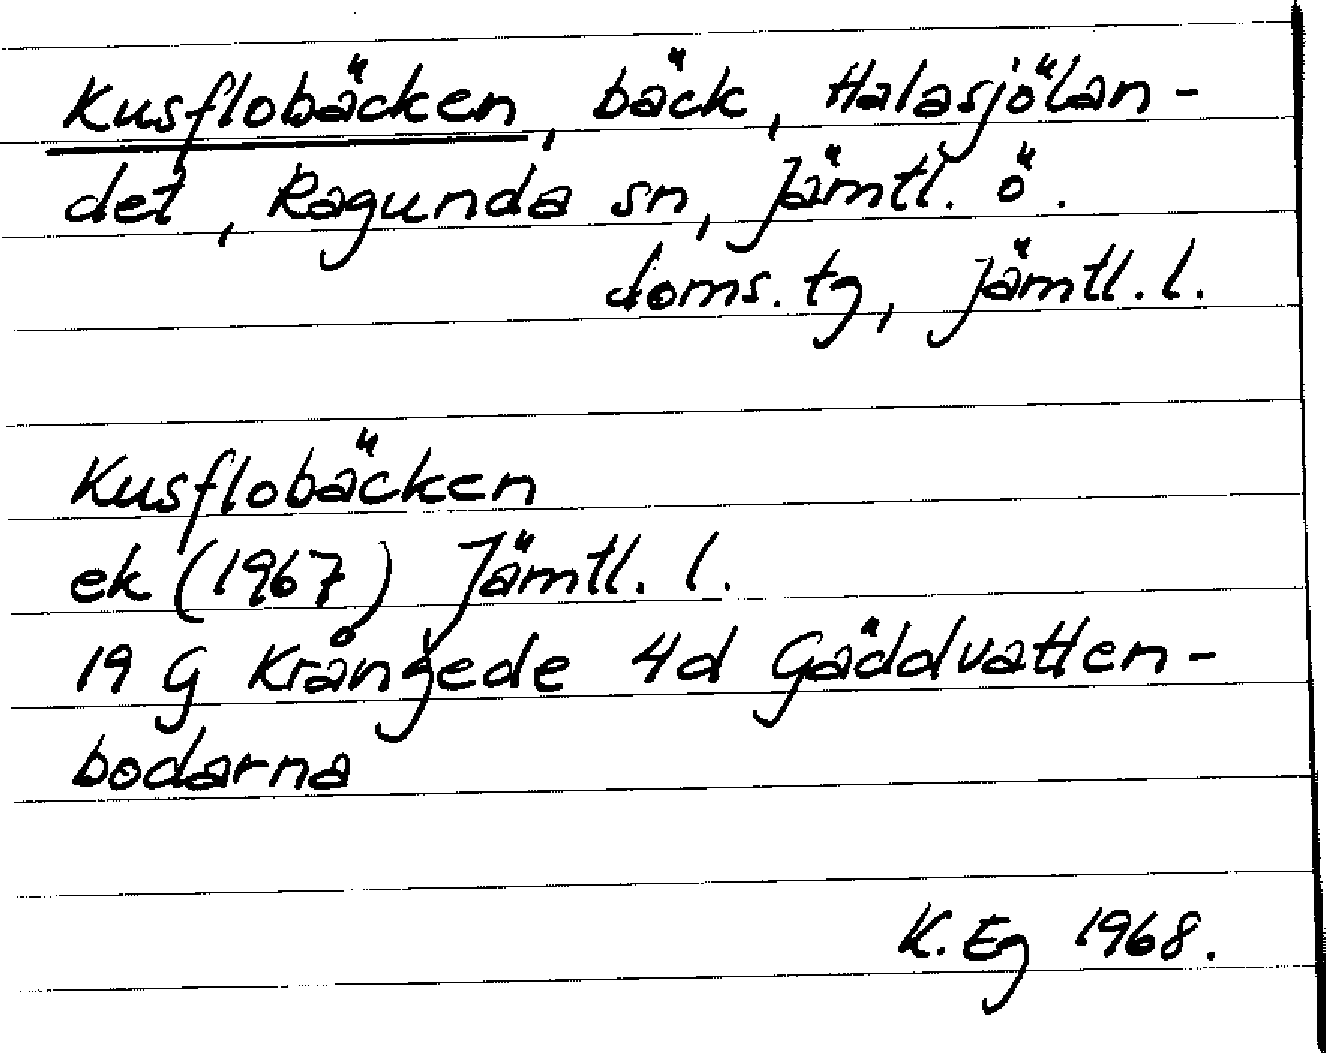 Kusflobäcken, bäck, Halasjölan-
det, Ragunda sn, Jämtl. ö.
doms. tg, Jämtl. l.
Kusflobäcken
ek (1967) Jämtl. l.
19 G Krångede 4d Gäddvatten-
bodarna
K. Eg 1968.